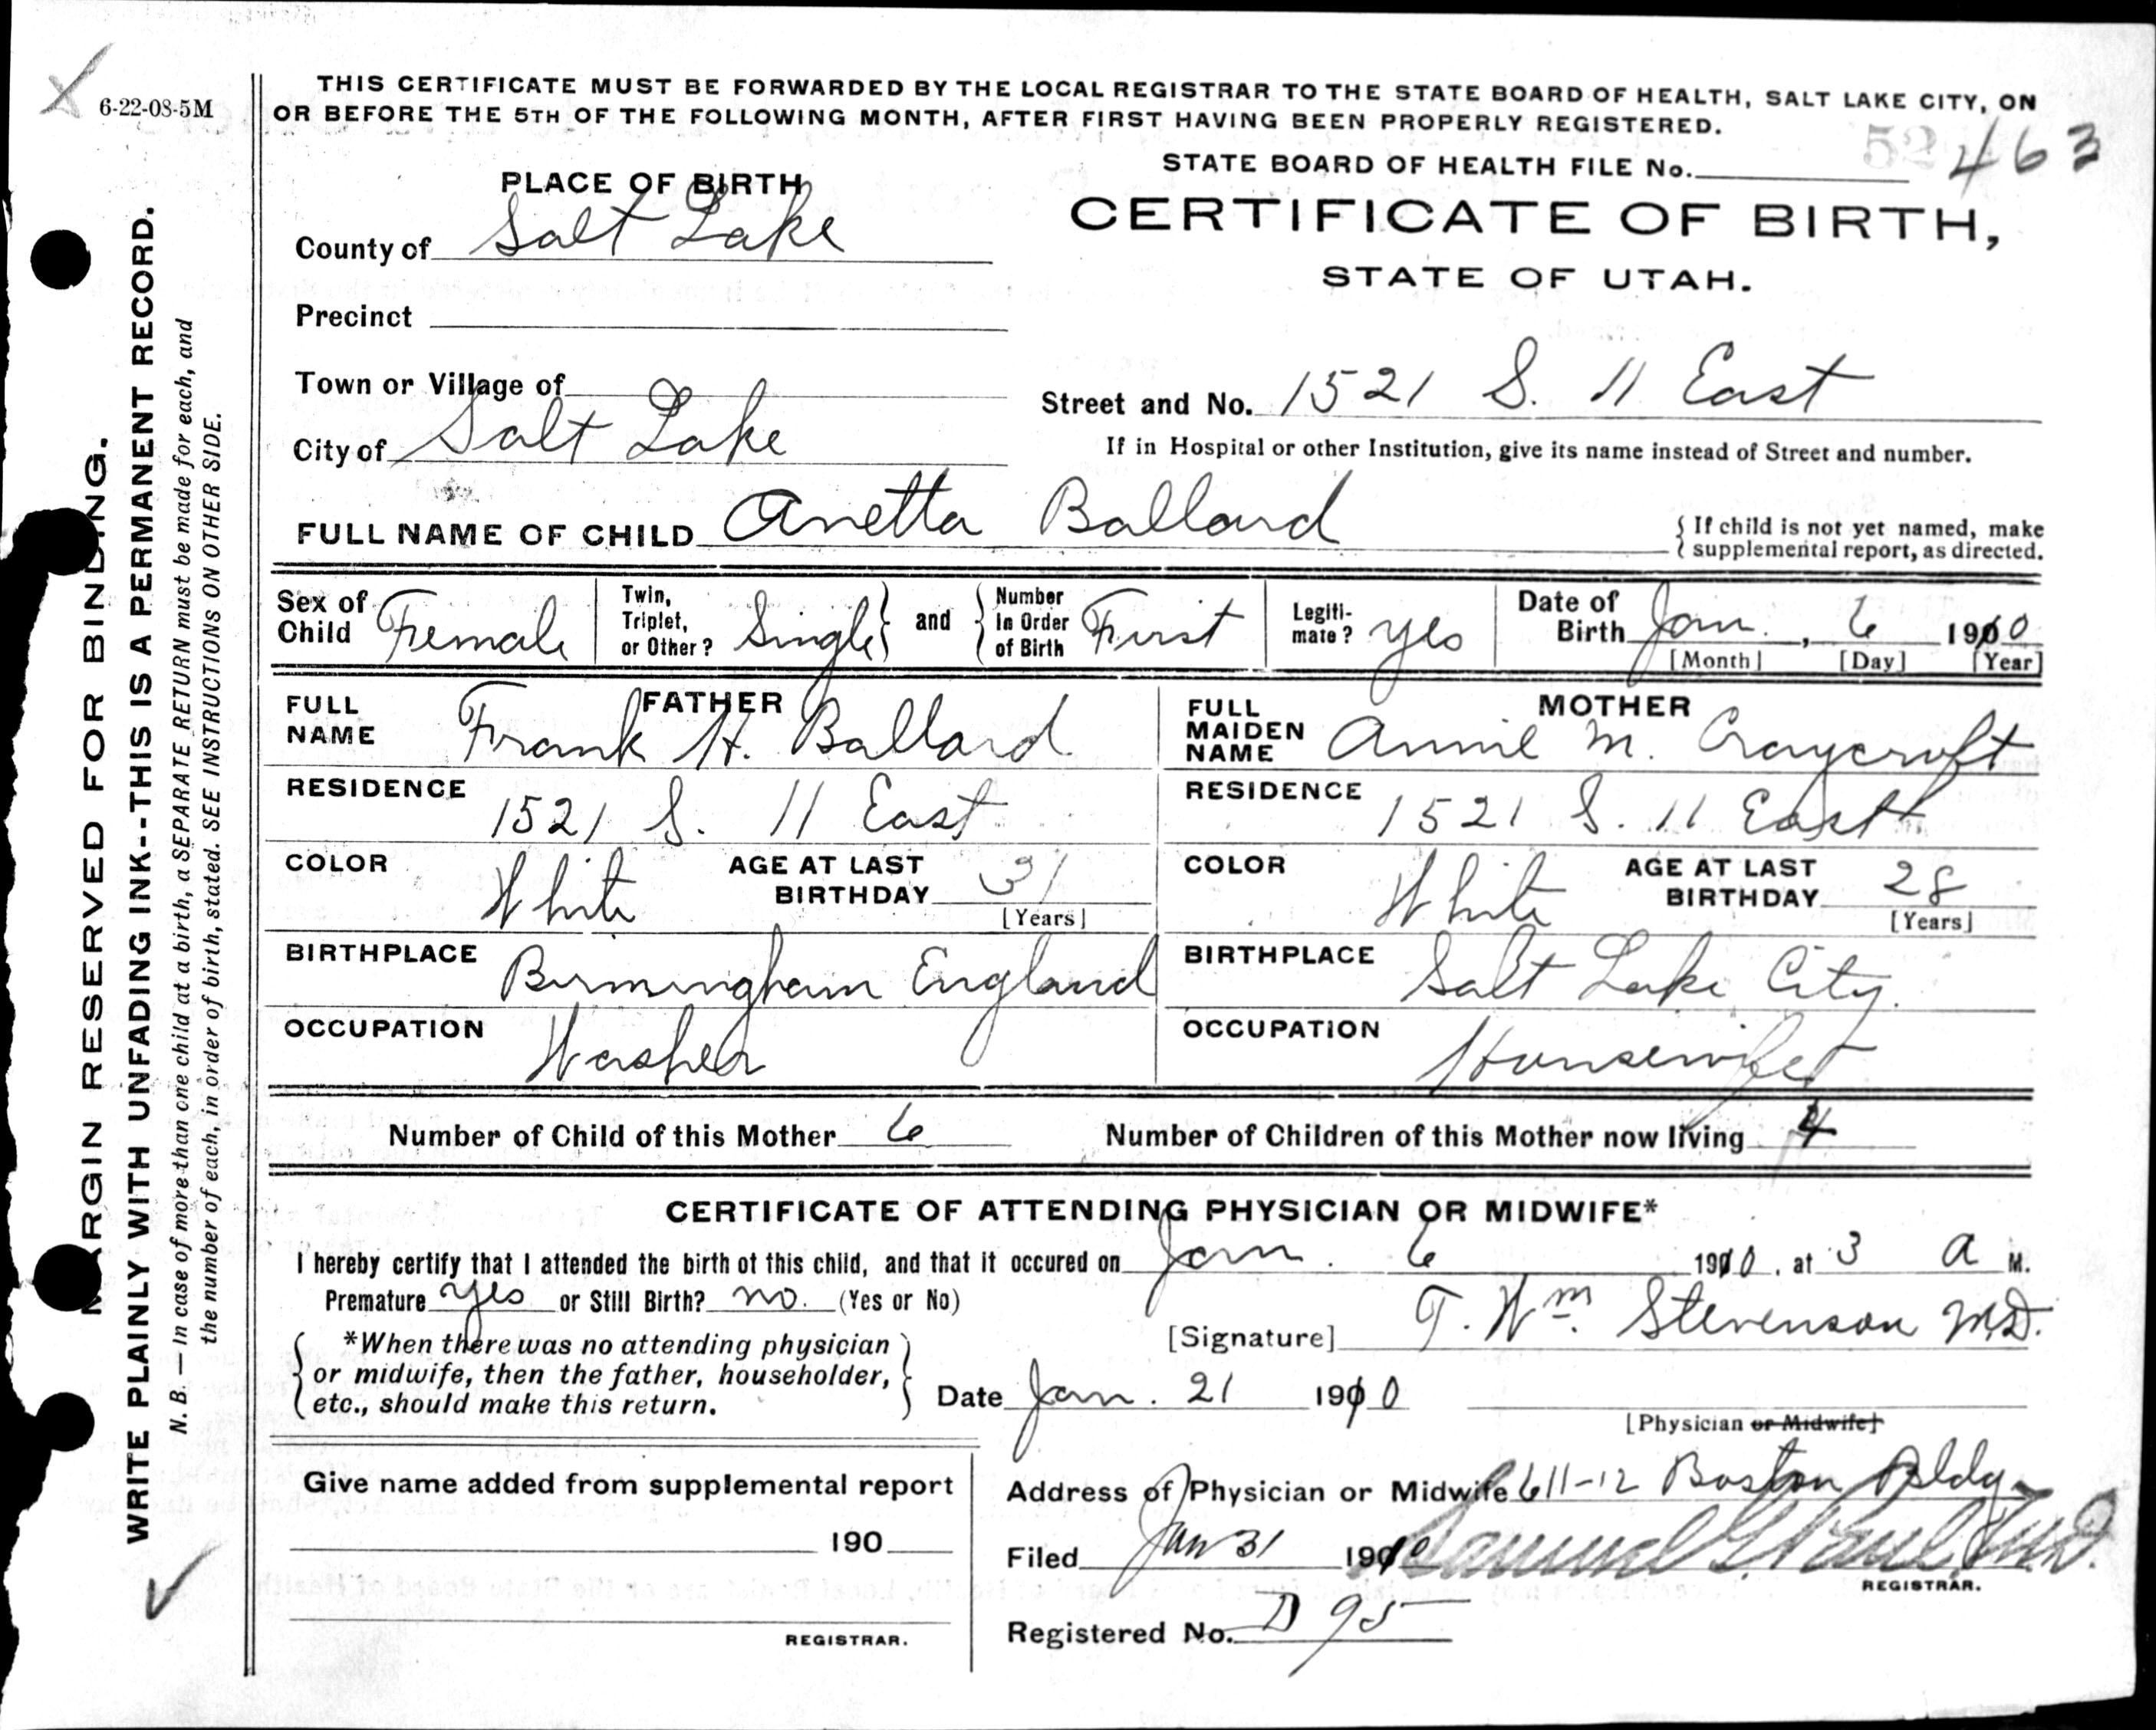 6-22-08-5M
THIS CERTIFICATE MUST BE FORWARDED BY THE LOCAL REGISTRAR TO THE STATE BOARD OF HEALTH, SALT LAKE CITY, ON
OR BEFORE THE 5TH OF THE FOLLOWING MONTH, AFTER FIRST HAVING BEEN PROPERLY REGISTERED.
STATE BOARD OF HEALTH FILE No. 52 463
CERTIFICATE OF BIRTH,
STATE OF UTAH.
PLACE OF BIRTH
County of Salt Lake
Precinct
Town or Village of
City of Salt Lake
Street and No. 1521 S. 11 East
If in Hospital or other Institution, give its name instead of Street and number.
FULL NAME OF CHILD Anetta Ballard
{ If child is not yet named, make
supplemental report, as directed.
Sex of Child Female
Twin, Triplet, or Other? Single } and { Number In Order of Birth First
Legiti-mate? yes
Date of Birth Jan. , 6 1910
[Month] [Day] [Year]
FATHER
FULL NAME Frank H. Ballard
RESIDENCE 1521 S. 11 East
COLOR White AGE AT LAST BIRTHDAY 31
[Years]
BIRTHPLACE Birmingham England
OCCUPATION Washer
MOTHER
FULL MAIDEN NAME Annie M. Craycroft
RESIDENCE 1521 S. 11 East
COLOR White AGE AT LAST BIRTHDAY 28
[Years]
BIRTHPLACE Salt Lake City.
OCCUPATION Housewife
Number of Child of this Mother 6 Number of Children of this Mother now living 4
CERTIFICATE OF ATTENDING PHYSICIAN OR MIDWIFE*
I hereby certify that I attended the birth of this child, and that it occured on Jan. 6 1910, at 3 A M.
Premature yes or Still Birth? no. (Yes or No)
[Signature] T. Wm. Stevenson M.D.
{ *When there was no attending physician
or midwife, then the father, householder,
etc., should make this return. }
Date Jan. 21 1910
[Physician or Midwife]
Give name added from supplemental report
190
REGISTRAR.
Address of Physician or Midwife 611-12 Boston Bldg
Filed Jan 31 1910 Samuel G. Paul, M.D.
REGISTRAR.
Registered No. D 95
MARGIN RESERVED FOR BINDING.
WRITE PLAINLY WITH UNFADING INK--THIS IS A PERMANENT RECORD.
N. B. In case of more than one child at a birth, a SEPARATE RETURN must be made for each, and
the number of each, in order of birth, stated. SEE INSTRUCTIONS ON OTHER SIDE.